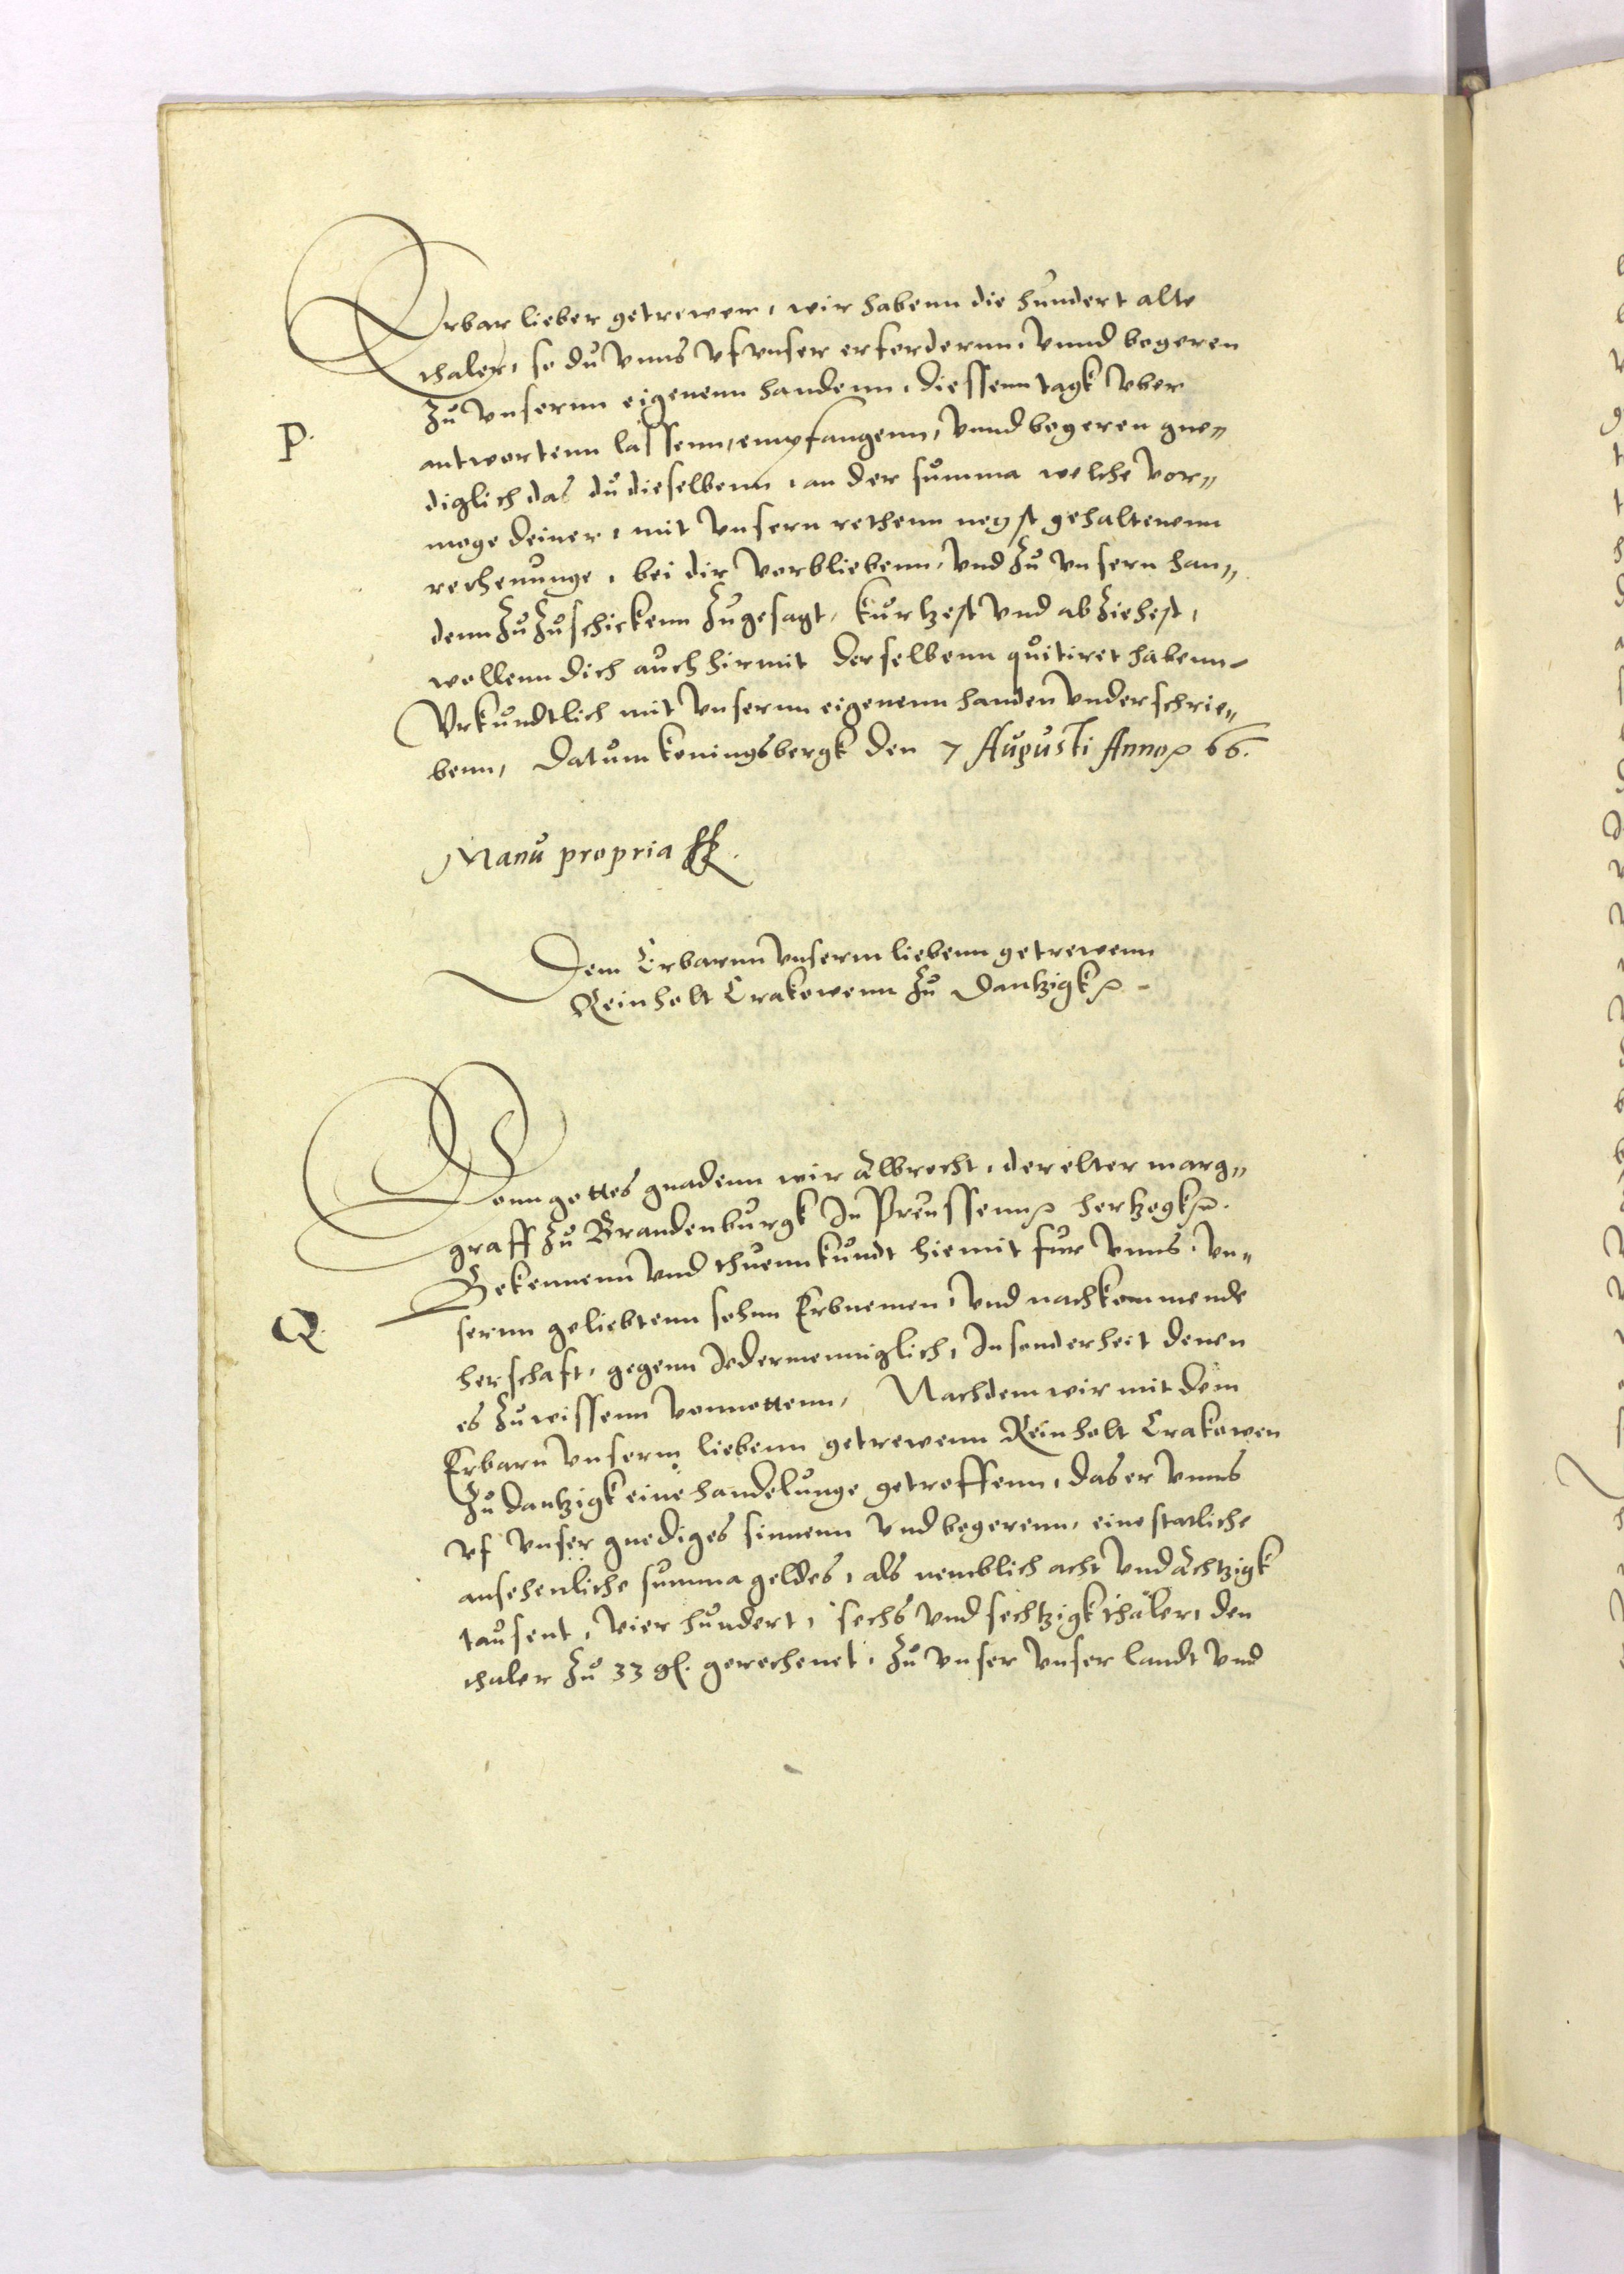 Erbar lieber getrewer, wir habenn die hundert alte
thaler, so du vnns vf vnser erfordernn, vnnd begeren
zu vnsernn eigenenn handenn, diessenn tagk vber
P.
antwortenn lassenn, empfangenn, vnnd begeren gne„
diglich das du dieselbenn, an der summa welche vor„
moge deiner, mit vnsern rethenn negst gehaltenenn
rechenunge, bei dir vorbliebenn, vnd zu vnsern han„
denn zuzuschickenn zugesagt, kurtzest vnd abziehest,
wollenn dich auch hirmit derselbenn quitiret habenn
Vrkundtlich mit vnsernn eigenenn handen vnderschrie„
benn, Datum koningsbergk den 7 Augusti Anno 66.
Manu propria
Dem Erbarnn vnserm liebenn getrewenn
Reinholt Crakowenn zu Dantzigk
Vonn gottes gnadenn wir Albrecht, der elter marg„
graff zu Brandenburgk In Preussenn hertzogk
Bekennenn vnd thuenn kundt hiemit fur vnns, vn„
Q.
sernn geliebtenn sohnn Erbnemen, vnd nachkommende
herschaft, gegenn Jedermenniglich, In sonderheit denen
es zu wissenn vonnottenn, Nachdem wir mit dem
Erbarn vnserm liebenn getrewenn Reinholt Crakowen
zu Dantzigk eine handelunge getroffenn, das er vnns
vf vnser gnediges sinnenn vnd begerenn, eine statliche
ansehenliche summa geldes, als nemblich acht vnd achtzigk
tausent, vier hundert, sechs vnd sechtzigk thaler, den
thaler zu 33 gl. gerechenet, zu vnser vnser landt vnd